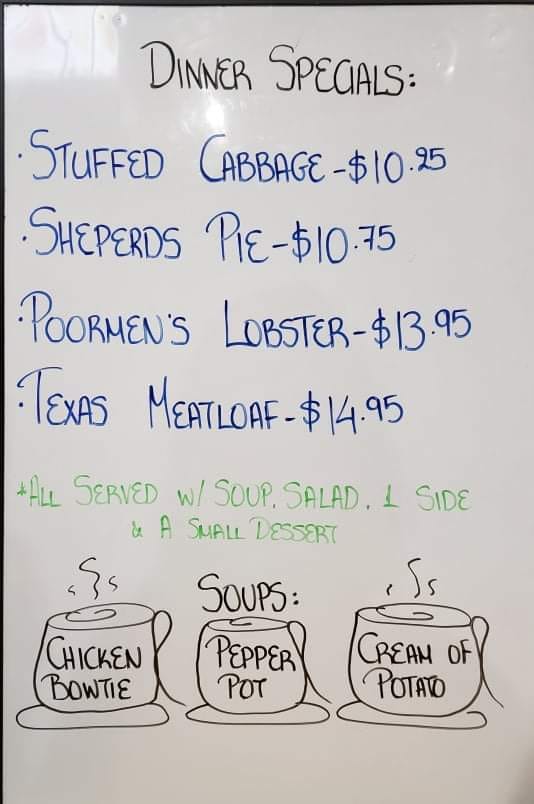 DINNER SPECIALS:
·STUFFED CABBAGE-$10.25
·SHEPERDS PIE-$10.75
·POORMEN'S LOBSTER-$13.95
·TEXAS MEATLOAF-$14.95
*ALL SERVED W/ SOUP, SALAD, 1 SIDE
& A SMALL DESSERT
SOUPS:
CHICKEN
BOWTIE
PEPPER
POT
CREAM OF
POTATO